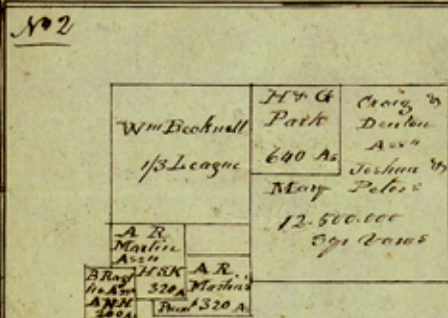 No 2
Wm Becknell
1/3 League
H & G
Park
640 As
Craig &
Denton
Assn
Joshua &
Mary Peters
12.500.000
Sqr Varas
A R
Martin
Assn
H & K
320 A
A R.
Martin
320 A
B Ray